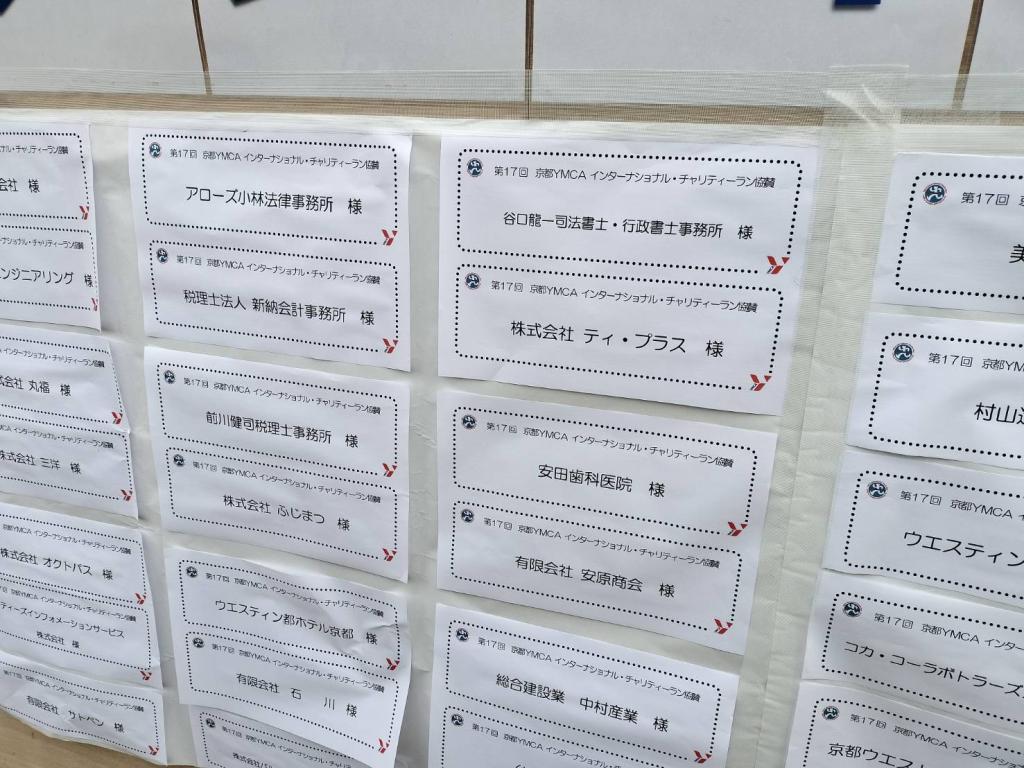 会社 様
ンジニアリング 様
丸福 様
株式会社 三洋 様
株式会社 オクトパス 様
ティーズインフォメーションサービス
株式会社 様
有限会社 サトペン 様
第17回 京都YMCA インターナショナル・チャリティーラン協賛
アローズ小林法律事務所 様
第17回 京都YMCA インターナショナル・チャリティーラン協賛
税理士法人 新納会計事務所 様
第17回 京都YMCA インターナショナル・チャリティーラン協賛
前川健司税理士事務所 様
第17回 京都YMCA インターナショナル・チャリティーラン協賛
株式会社 ふじまつ 様
第17回 京都YMCA インターナショナル・チャリティーラン協賛
ウエスティン都ホテル京都 様
第17回 京都YMCA インターナショナル・チャリティーラン協賛
有限会社 石 川 様
第17回 京都YMCA インターナショナル・チャリティーラン協賛
第17回 京都YMCA インターナショナル・チャリティーラン協賛
谷口龍一司法書士・行政書士事務所 様
第17回 京都YMCA インターナショナル・チャリティーラン協賛
株式会社 ティ・プラス 様
第17回 京都YMCA インターナショナル・チャリティーラン協賛
安田歯科医院 様
第17回 京都YMCA インターナショナル・チャリティーラン協賛
有限会社 安原商会 様
第17回 京都YMCA インターナショナル・チャリティーラン協賛
総合建設業 中村産業 様
第17回 京都YMCA インターナショナル・チャリティーラン協賛
第17回 京
美
第17回 京都YM
村山
第17回 京都YMCA
ウエスティン
第17回 京都YMCA イン
コカ・コーラボトラーズ
第17回 京都YMCA インター
京都ウエスト